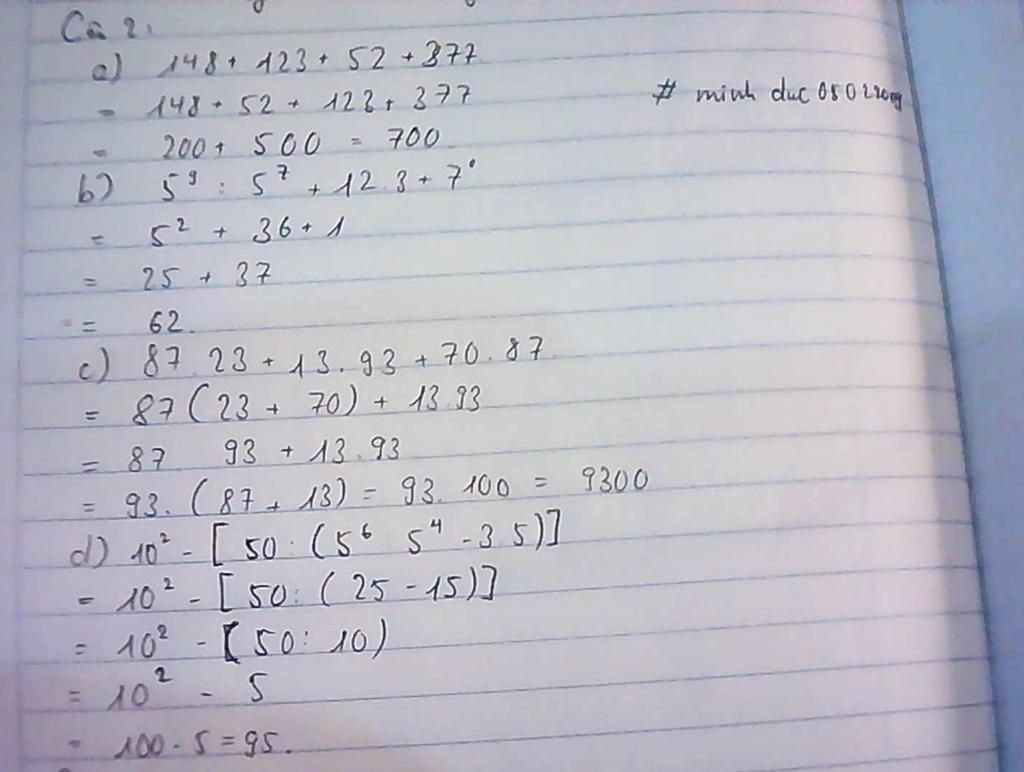 Câu 2:
a) 148 + 123 + 52 + 377
= 148 + 52 + 123 + 377
# minh duc 05022009
= 200 + 500 = 700
b) 5⁹ : 5⁷ + 12.3 + 7⁰
= 5² + 36 + 1
= 25 + 37
= 62.
c) 87 23 + 13.93 + 70.87
= 87(23 + 70) + 13.93
= 87 93 + 13.93
= 93.(87 + 13) = 93.100 = 9300
d) 10² - [50 : (5⁶ 5⁴ - 3 5)]
= 10² - [50 : (25 - 15)]
= 10² - [50 : 10)
= 10² - 5
= 100 - 5 = 95.